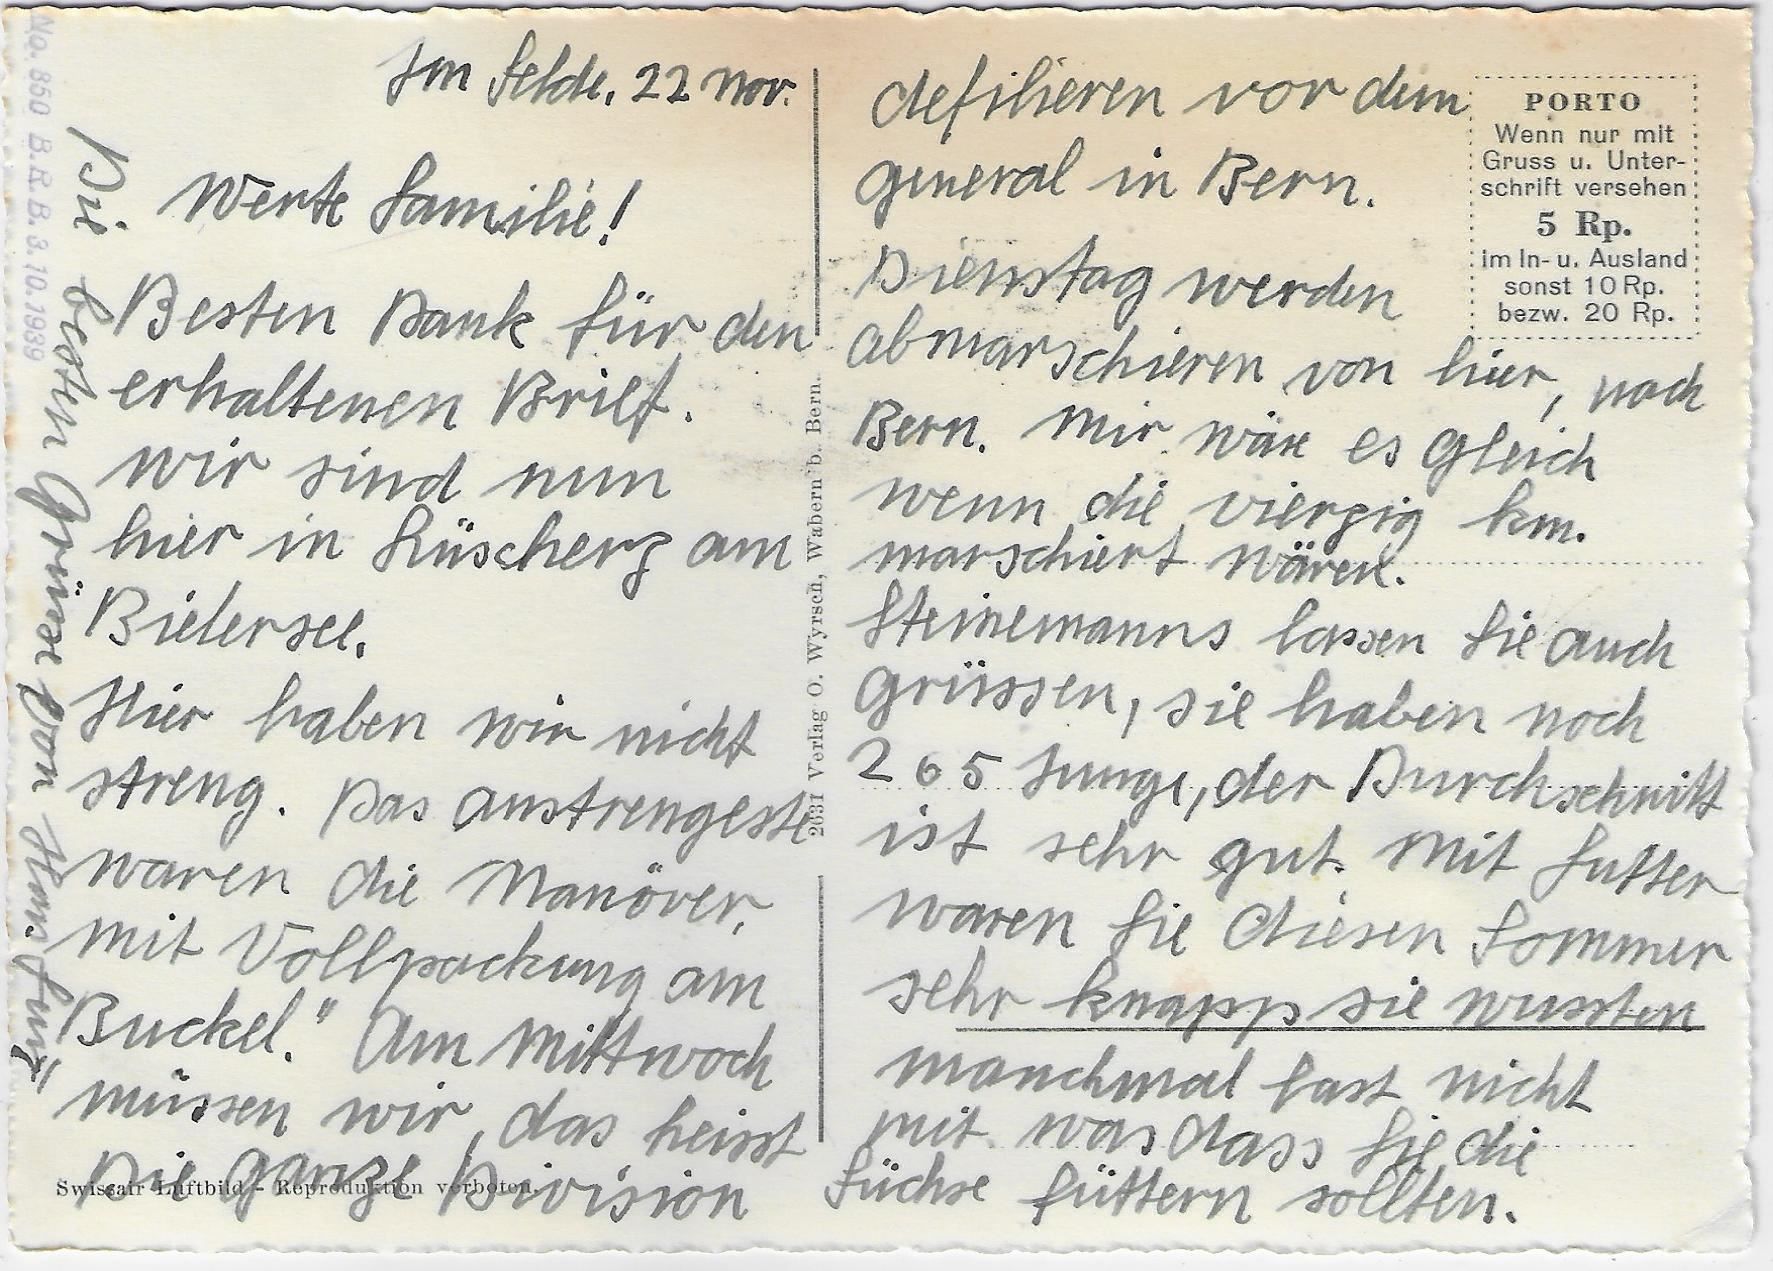 Im Felde, 22 Nov.
Werte Familie!
Besten Dank für den
erhaltenen Brief.
wir sind nun
hier in Lüscherz am
Bielersee.
Hier haben wir nicht
streng. Das anstrengeste
waren die Manöver,
mit Vollpackung am
Buckel." Am Mittwoch
müssen wir, das heisst
Die ganze Division
defilieren vor dem
General in Bern.
Dienstag werden
abmarschieren von hier, nach
Bern. Mir wäre es gleich
wenn die vierzig km.
marschiert wären.
Steinemanns lassen Sie auch
grüssen, sie haben noch
265 Junge, der Durchschnitt
ist sehr gut. Mit Futter
waren Sie diesen Sommer
sehr knapp sie wussten
manchmal fast nicht
mit was dass Sie die
Füchse füttern sollten.
Die besten Grüsse von
PORTO
Wenn nur mit
Gruss u. Unter-
schrift versehen
5 Rp.
im In- u. Ausland
sonst 10 Rp.
bezw. 20 Rp.
2631 Verlag O. Wyrsch, Wabern b. Bern.
Swissair Luftbild - Reproduktion verboten.
No. 850 B.R.B. 3.10.1939